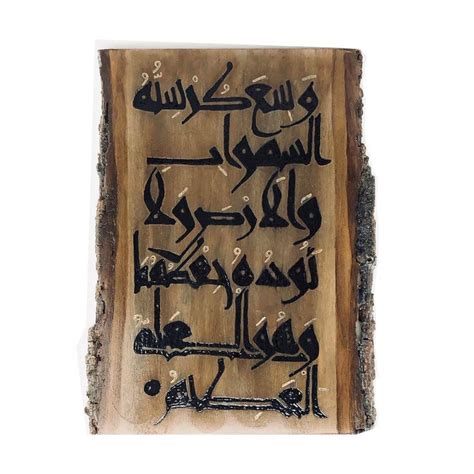 وَسِعَ كُرْسِيُّهُ
السموات
وَالأرْضَ وَلا
يَؤُدهُ حِفْظُهُمَا
وَهُوَ الْعَلِيُّ
الْعَظِيمُ